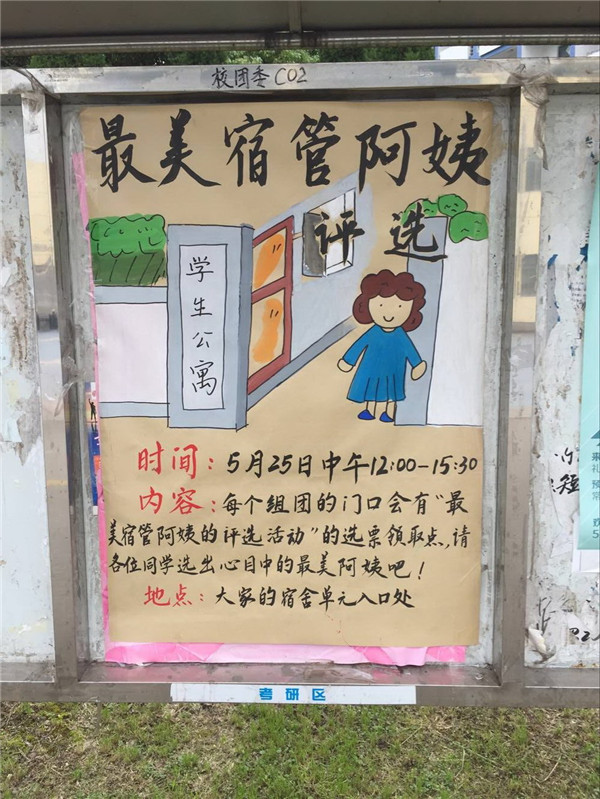 校团委 C02
最美宿管阿姨
评选
学生公寓
时间：5月25日中午12:00-15:30
内容：每个组团的门口会有"最
美宿管阿姨的评选活动"的选票领取点，请
各位同学选出心目中的最美阿姨吧！
地点：大家的宿舍单元入口处
考研区